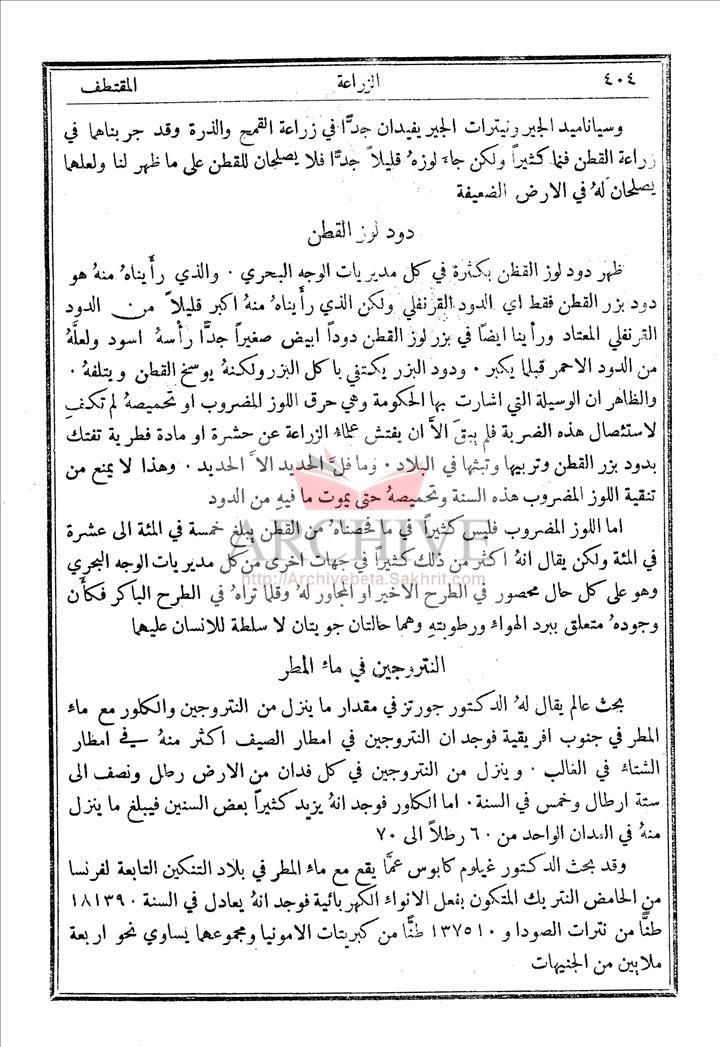 ٤٠٤ الزراعة المقتطف
وسياناميد الجير ونيترات الجير يفيدان جدًّا في زراعة القمح والذرة وقد جربناهما في
زراعة القطن فنما كثيراً ولكن جاءَ لوزهُ قليلاً جدًّا فلا يصلحان للقطن على ما ظهر لنا ولعلهما
يصلحان لهُ في الارض الضعيفة
دود لوز القطن
ظهر دود لوز القطن بكثرة في كل مديريات الوجه البحري ٠ والذي رأَيناهُ منهُ هو
دود بزر القطن فقط اي الدود القرنفلي ولكن الذي رأَيناهُ منهُ اكبر قليلاً من الدود
القرنفلي المعتاد ورأَينا ايضاً في بزر لوز القطن دوداً ابيض صغيراً جدًّا رأسهُ اسود ولعلَّهُ
من الدود الاحمر قبلما يكبر ٠ ودود البزر يكتفي باكل البزر ولكنهُ يوسخ القطن ويتلفهُ ٠
والظاهر ان الوسيلة التي اشارت بها الحكومة وهي حرق اللوز المضروب او تحميصهُ لم تكفِ
لاستئصال هذه الضربة فلم يبقَ الاَّ ان يفتش علماءُ الزراعة عن حشرة او مادة فطرية تفتك
بدود بزر القطن وتربيها وتبثها في البلاد ٠ وما فلَّ الحديد الاَّ الحديد ٠ وهذا لا يمنع من
تنقية اللوز المضروب هذه السنة وتحميصهُ حتى يموت ما فيهِ من الدود
اما اللوز المضروب فليس كثيراً في ما فحصناه من القطن يبلغ خمسة في المئة الى عشرة
في المئة ولكن يقال انهُ اكثر من ذلك كثيراً في جهات اخرى من كل مديريات الوجه البحري
وهو على كل حال محصور في الطرح الاخير او المجاور لهُ وقلما تراهُ في الطرح الباكر فكأَن
وجودهُ متعلق ببرد الهواء ورطوبتهِ وهما حالتان جويتان لا سلطة للانسان عليهما
ARCHIVE
http://Archivebeta.Sakhrit.com
النتروجين في ماء المطر
بحث عالم يقال لهُ الدكتور جورتز في مقدار ما ينزل من النتروجين والكلور مع ماء
المطر في جنوب افريقية فوجد ان النتروجين في امطار الصيف اكثر منهُ في امطار
الشتاء في الغالب ٠ وينزل من النتروجين في كل فدان من الارض رطل ونصف الى
ستة ارطال وخمس في السنة ٠ اما الكلور فوجد انهُ يزيد كثيراً بعض السنين فيبلغ ما ينزل
منهُ في الفدان الواحد من ٦٠ رطلاً الى ٧٠
وقد بحث الدكتور غيلوم كابوس عمَّا يقع مع ماء المطر في بلاد التنكين التابعة لفرنسا
من الحامض النتريك المتكون بفعل الانواء الكهربائية فوجد انهُ يعادل في السنة ١٨١٣٩٠
طنًّا من نترات الصودا و ١٣٧٥١٠ طنًّا من كبريتات الامونيا ومجموعهما يساوي نحو اربعة
ملايين من الجنيهات